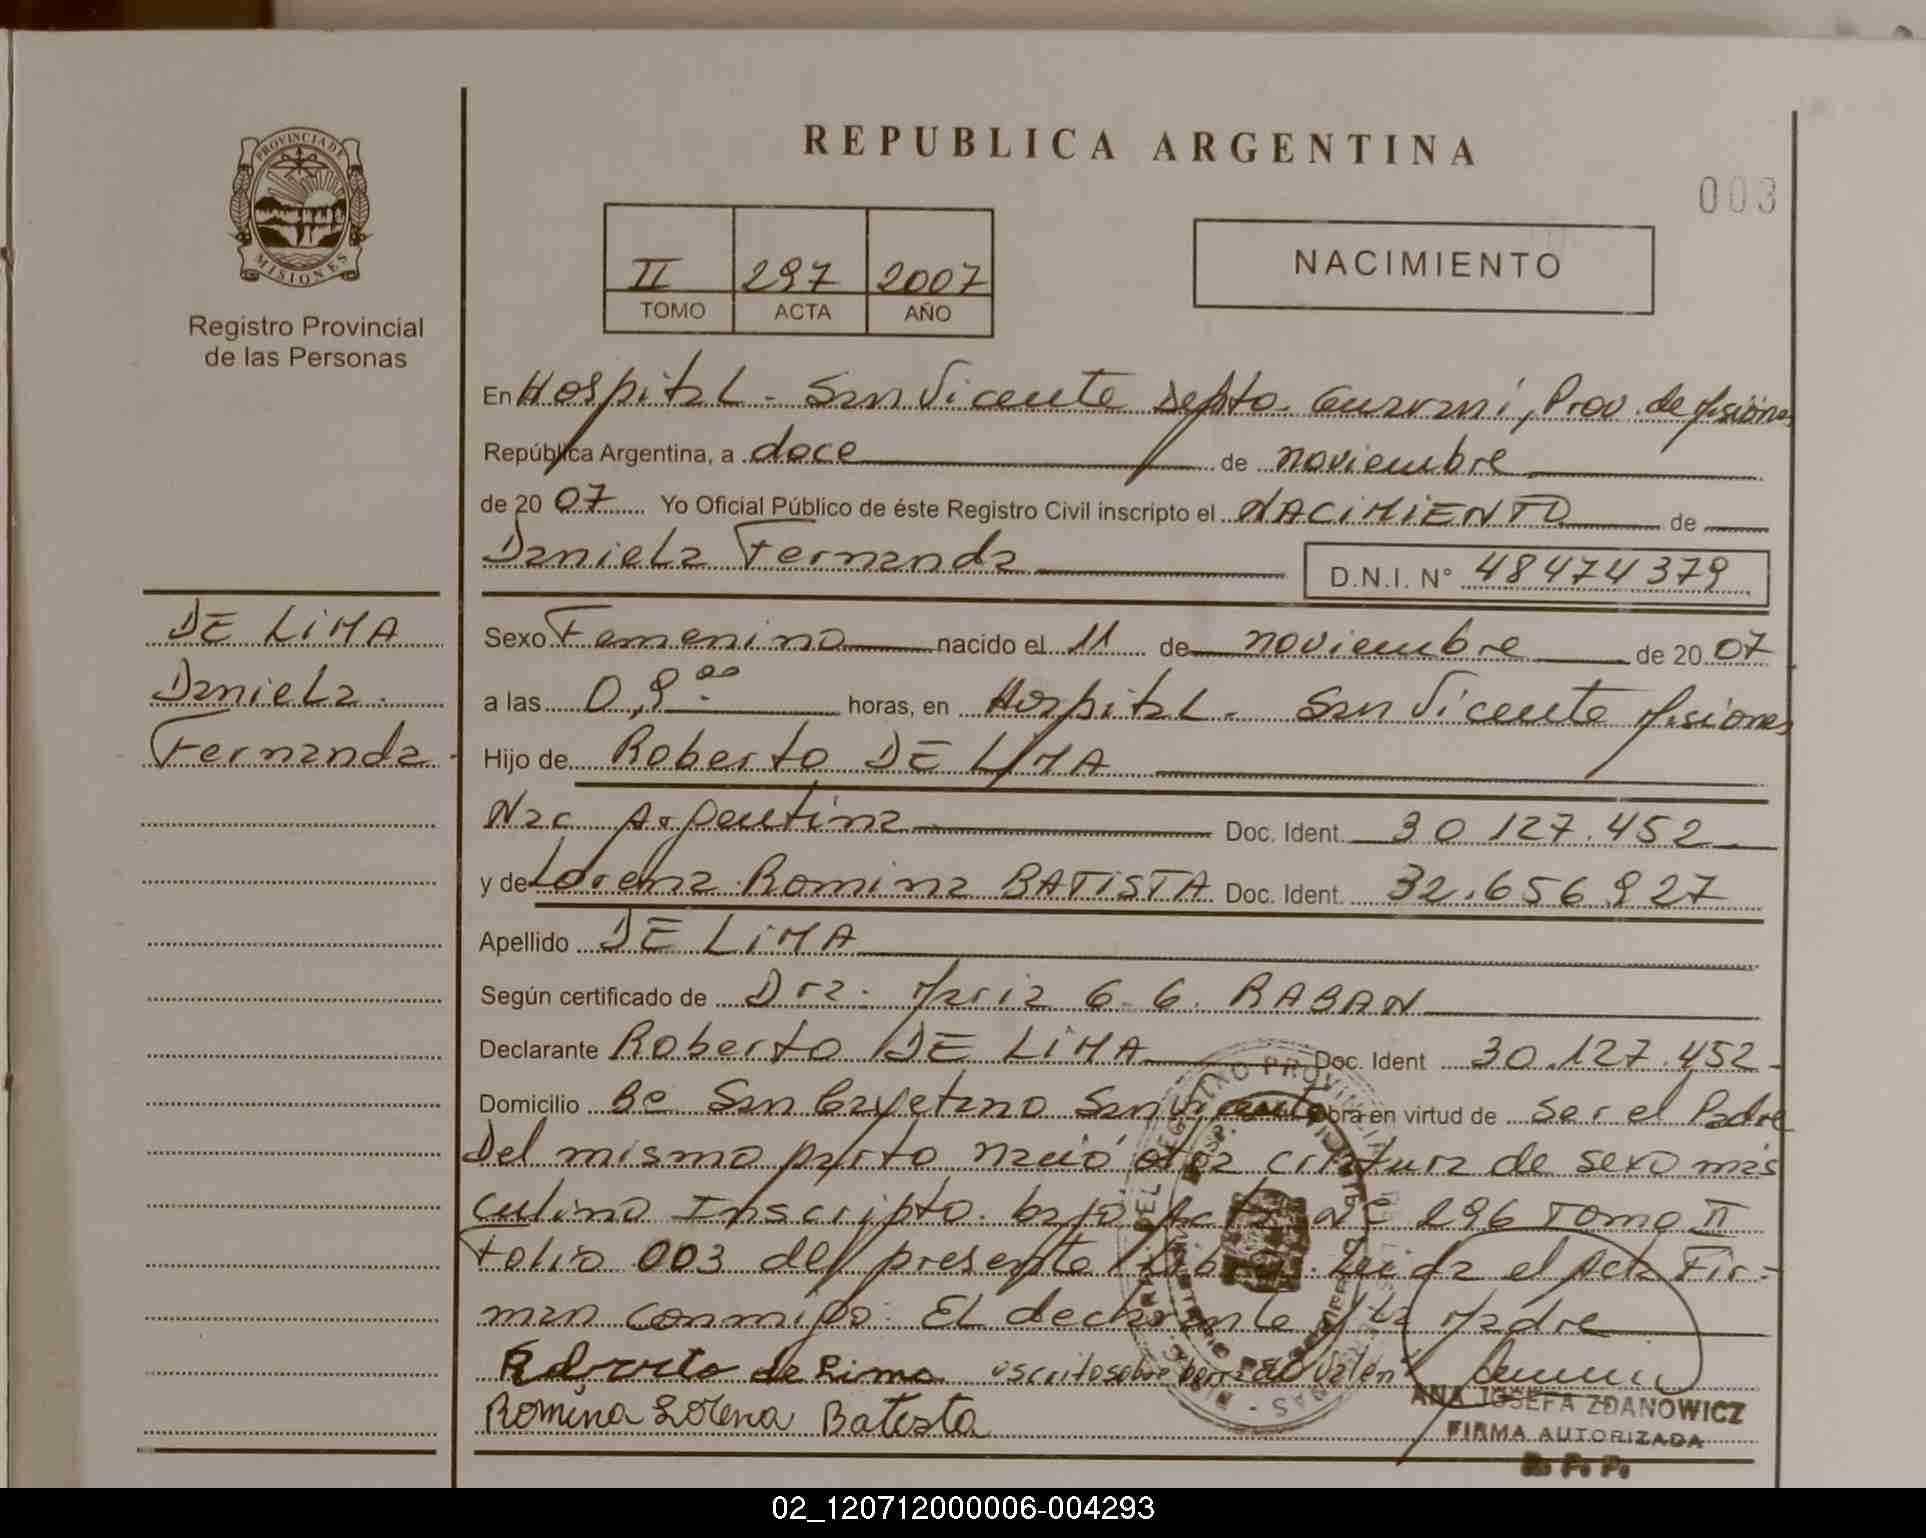 REPUBLICA ARGENTINA
003
PROVINCIA DE
MISIONES
Registro Provincial
de las Personas
II 297 2007
TOMO ACTA AÑO
NACIMIENTO
En Hospital - San Vicente Depto. Guaraní, Prov. de Misiones
República Argentina, a doce de noviembre
de 2007 Yo Oficial Público de éste Registro Civil inscripto el NACIMIENTO de
Daniela Fernanda D.N.I. N° 48474379
DE LIMA
Daniela
Fernanda
Sexo Femenino nacido el 11 de noviembre de 2007
a las 0,9 00 horas, en Hospital - San Vicente Misiones
Hijo de Roberto DE LIMA
Nac Argentina Doc. Ident. 30.127.452
y de Lorena Romina BATISTA Doc. Ident. 32.656.927
Apellido DE LIMA
Según certificado de Dra. Maria G. G. RABAN
Declarante Roberto DE LIMA Doc. Ident 30.127.452
Domicilio Bº San Cayetano San Vicente Obra en virtud de ser el Padre
Del mismo parto nació otra criatura de sexo mas
culino Inscripto bajo Acta Nº 296 Tomo II
Folio 003 del presente Libro. Leida el Acta Fir-
man conmigo: El declarante y la Madre
Roberto de Lima escrito sobre borrado valen
Romina Lorena Batista
ANA JOSEFA ZDANOWICZ
FIRMA AUTORIZADA
R. P. P.
02_120712000006-004293